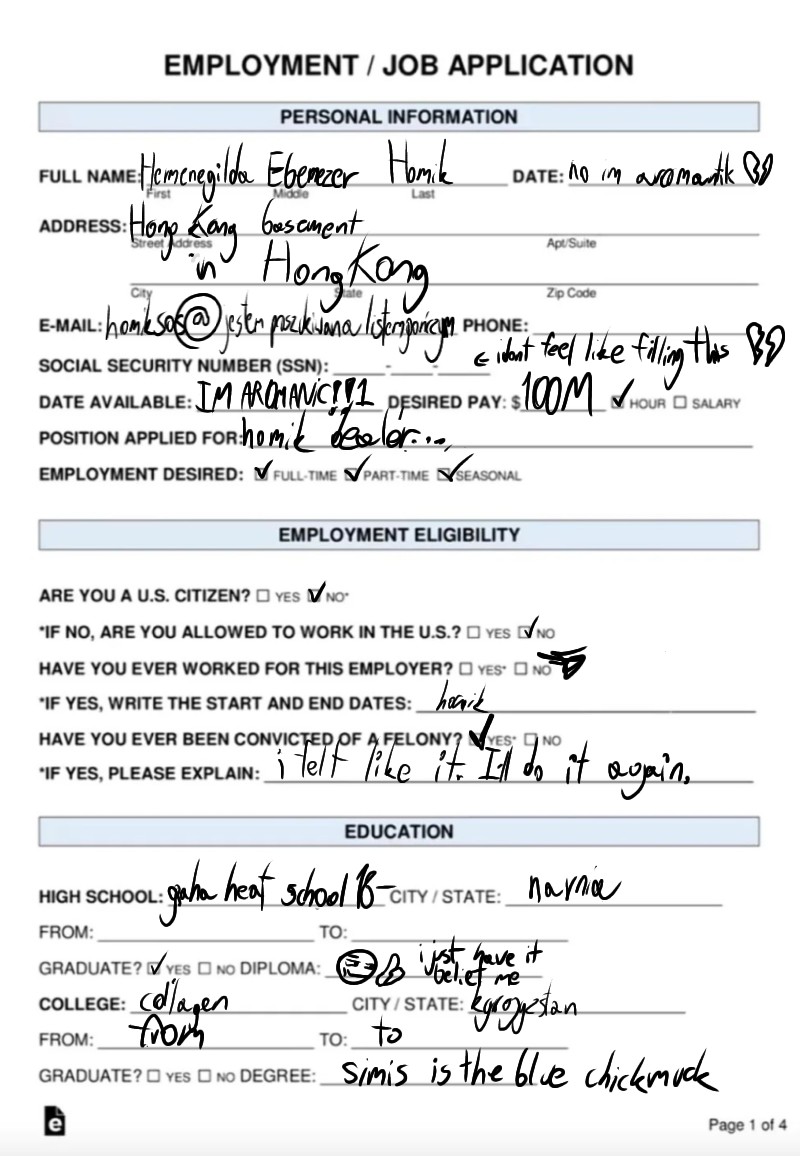 EMPLOYMENT / JOB APPLICATION
PERSONAL INFORMATION
FULL NAME: Hemenegilda Ebenezer Homik DATE: no im aromantik
First Middle Last
ADDRESS: Hong Kong basement
Street Address Apt/Suite
in HongKong
City State Zip Code
E-MAIL: homiksos@jestem poszukiwana listem gończym PHONE:
SOCIAL SECURITY NUMBER (SSN): - - ← i dont feel like filling this
DATE AVAILABLE: IM AROMANIC!!1 DESIRED PAY: $100M ✓ HOUR ☐ SALARY
POSITION APPLIED FOR: homik dealer...,
EMPLOYMENT DESIRED: ✓ FULL-TIME ✓ PART-TIME ✓ SEASONAL
EMPLOYMENT ELIGIBILITY
ARE YOU A U.S. CITIZEN? ☐ YES ✓ NO*
*IF NO, ARE YOU ALLOWED TO WORK IN THE U.S.? ☐ YES ✓ NO
HAVE YOU EVER WORKED FOR THIS EMPLOYER? ☐ YES* ☐ NO
*IF YES, WRITE THE START AND END DATES: homik
HAVE YOU EVER BEEN CONVICTED OF A FELONY? ✓ YES* ☐ NO
*IF YES, PLEASE EXPLAIN: i felt like it. I'll do it again.
EDUCATION
HIGH SCHOOL: gaha heat school CITY / STATE: narnia
FROM: TO:
GRADUATE? ✓ YES ☐ NO DIPLOMA: i just have it
belief me
COLLEGE: collagen CITY / STATE: kgrogystan
FROM: from TO: to
GRADUATE? ☐ YES ☐ NO DEGREE: simis is the blue chickmuck
e Page 1 of 4